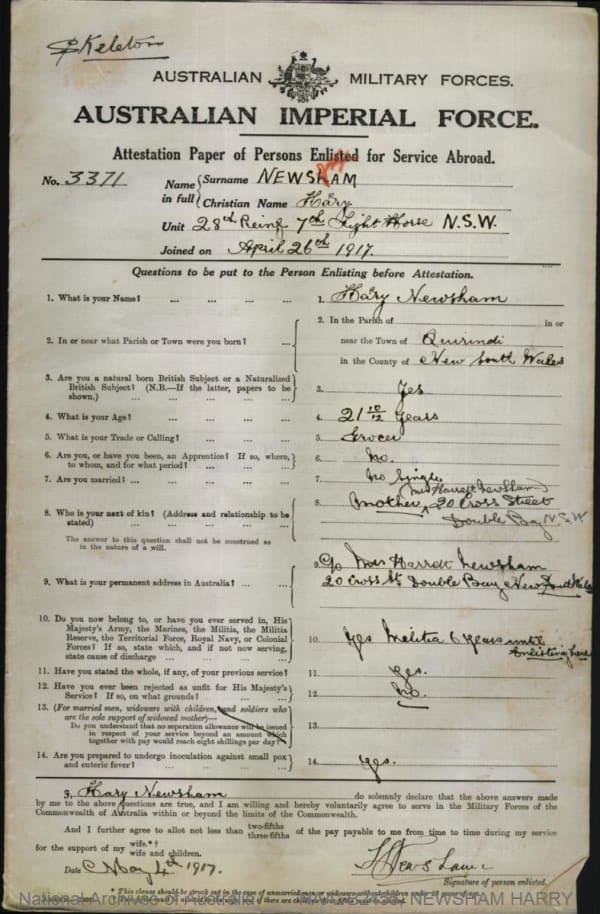 Skeleton
AUSTRALIAN MILITARY FORCES.
AUSTRALIAN IMPERIAL FORCE.
Attestation Paper of Persons Enlisted for Service Abroad.
No. 3371
Name in full { Surname NEWSHAM
Christian Name Harry
Unit 28th Reinf 7th Light Horse N.S.W.
Joined on April 26th 1917.
Questions to be put to the Person Enlisting before Attestation.
1. What is your Name? ... ... ... ... 1. Harry Newsham
2. In or near what Parish or Town were you born? ... 2. In the Parish of in or
near the Town of Quirindi
in the County of New South Wales
3. Are you a natural born British Subject or a Naturalized
British Subject? (N.B.—If the latter, papers to be
shown.) ... ... ... ... 3. Yes
4. What is your Age? ... ... ... ... 4. 21 10/12 Years
5. What is your Trade or Calling? ... ... ... 5. Grocer
6. Are you, or have you been, an Apprentice? If so, where,
to whom, and for what period? ... ... ... 6. No.
7. Are you married? ... ... ... ... 7. No Single
8. Who is your next of kin? (Address and relationship to be
stated) ... ... ... ... 8. Mother, Mrs Harriett Newsham
20 Cross Street
Double Bay N.S.W
The answer to this question shall not be construed as
in the nature of a will.
9. What is your permanent address in Australia? ... ... 9. C/o Mrs Harrett Newsham
20 Cross St Double Bay New South Wales
10. Do you now belong to, or have you ever served in, His
Majesty's Army, the Marines, the Militia, the Militia
Reserve, the Territorial Force, Royal Navy, or Colonial
Forces? If so, state which, and if not now serving,
state cause of discharge ... ... ... 10. Yes Melitia 6 Years until
Enlisting here
11. Have you stated the whole, if any, of your previous service? 11. Yes.
12. Have you ever been rejected as unfit for His Majesty's
Service? If so, on what grounds? ... ... 12. No.
13. (For married men, widowers with children, and soldiers who
are the sole support of widowed mother)—
Do you understand that no separation allowance will be issued
in respect of your service beyond an amount which
together with pay would reach eight shillings per day? 13.
14. Are you prepared to undergo inoculation against small pox
and enteric fever? ... ... ... ... 14. Yes.
I, Harry Newsham do solemnly declare that the above answers made
by me to the above questions are true, and I am willing and hereby voluntarily agree to serve in the Military Forces of the
Commonwealth of Australia within or beyond the limits of the Commonwealth.
And I further agree to allot not less than two-fifths three-fifths of the pay payable to me from time to time during my service
for the support of my wife.*† wife and children.
Date May 4th 1917. H Newsham
Signature of person enlisted.
National Archives of Australia NEWSHAM HARRY